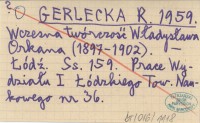 20 GERLECKA R. 1959.
Wczesna twórczość Władysława
Orkana (1897-1902). –
Łódź. Ss. 159. Prace Wy-
działu I Łódzkiego Tow. Nau-
kowego nr 36.